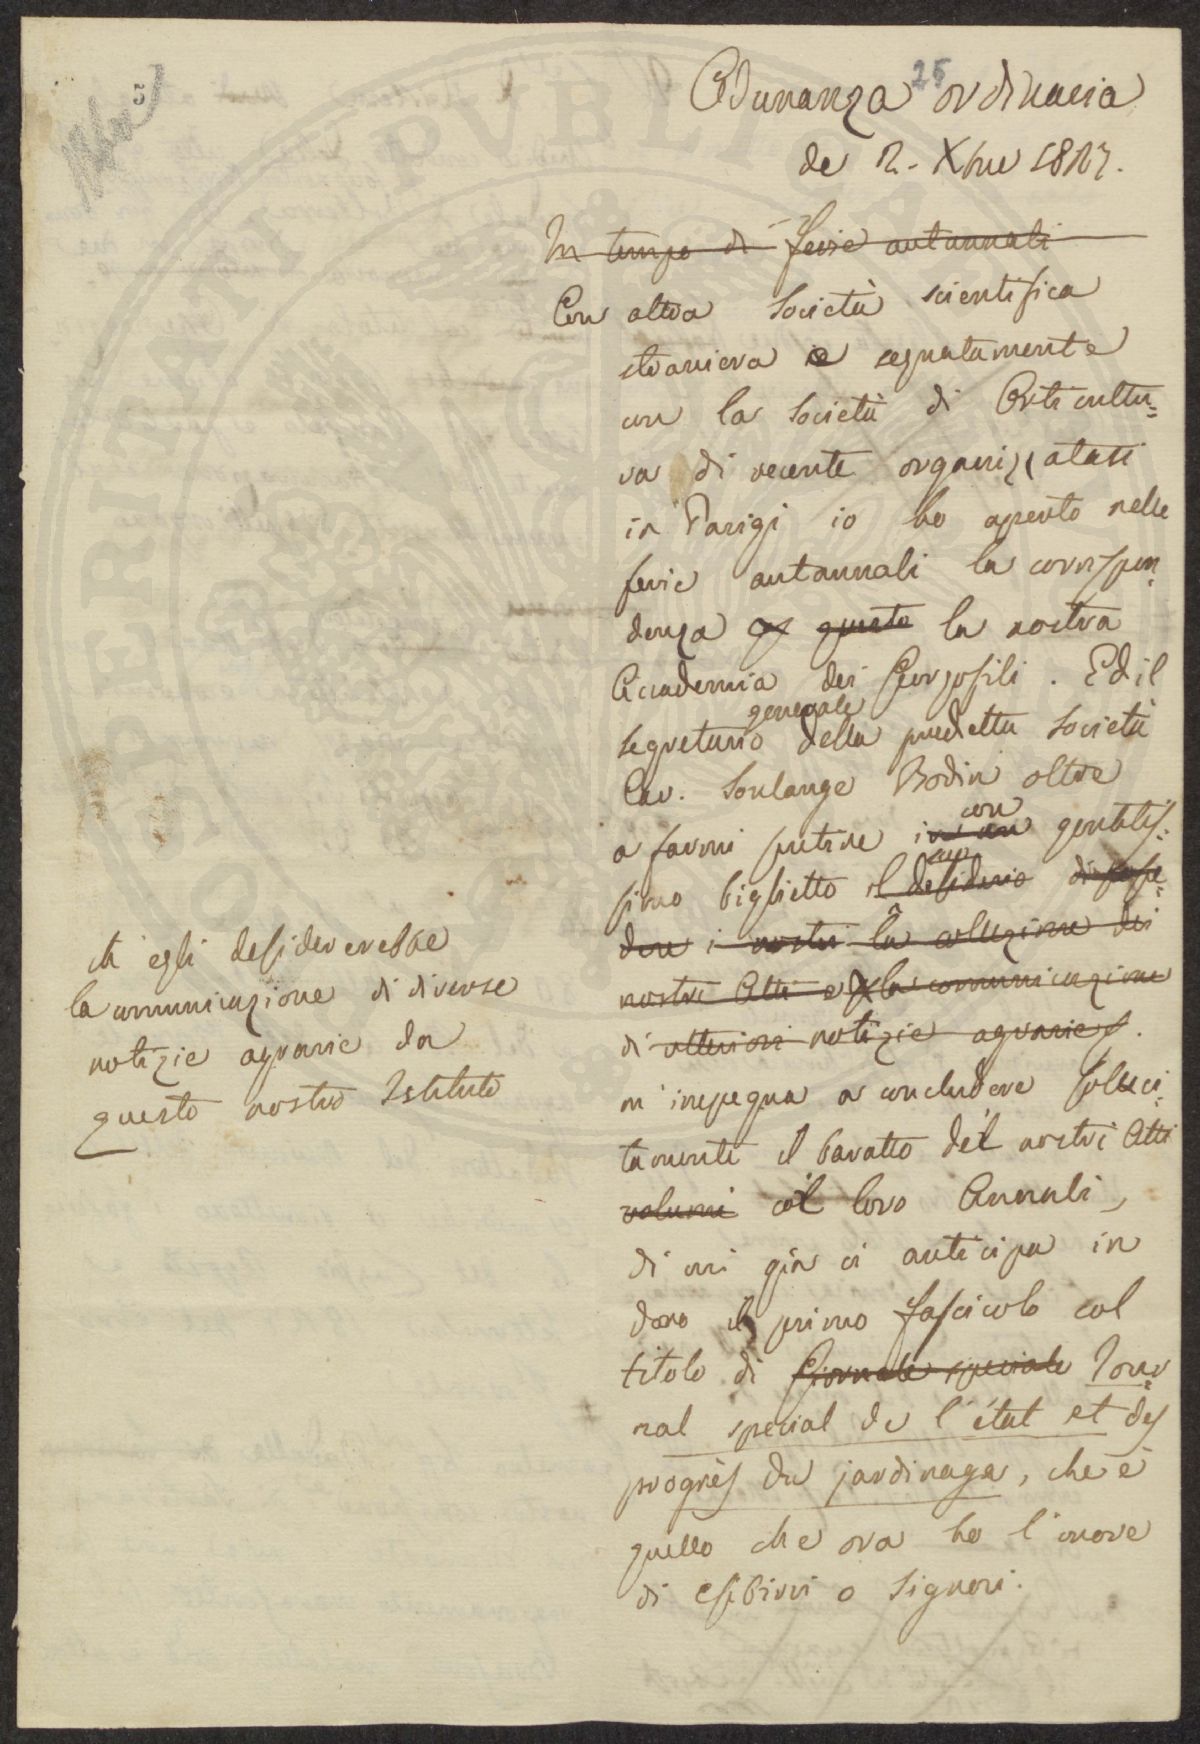 5
25
Adunanza ordinaria
de 2. Xbre 1827.
In tempo di ferie autunnali
Con altra Società scientifica
straniera e segnatamente
con la Società di Orticultu=
ra di recente organizzatasi
in Parigi io ho aperto nelle
ferie autunnali la corrispon=
denza questa la nostra
Accademia dei Georgofili. Ed il
generale
segretario della predetta Società
Cav. Soulange Bodin oltre
con
a farmi sentire in un gentilis=
simo biglietto il desiderio di
i nostri la collezione dei
nostri Atti e la comunicazione
di ulteriori notizie agrarie.
ch egli desidererebbe
la comunicazione di diverse
notizie agrarie da
questo nostro Istituto
m'impegna a concludere solleci=
tamente il baratto dei nostri Atti
volumi coi loro Annali,
di cui già ci anticipa in
dono il primo fascicolo col
titolo di Giornale speciale Jour=
nal special de l'état et des
progrès du jardinage, che è
quello che ora ho l'onore
di esibirvi o Signori.